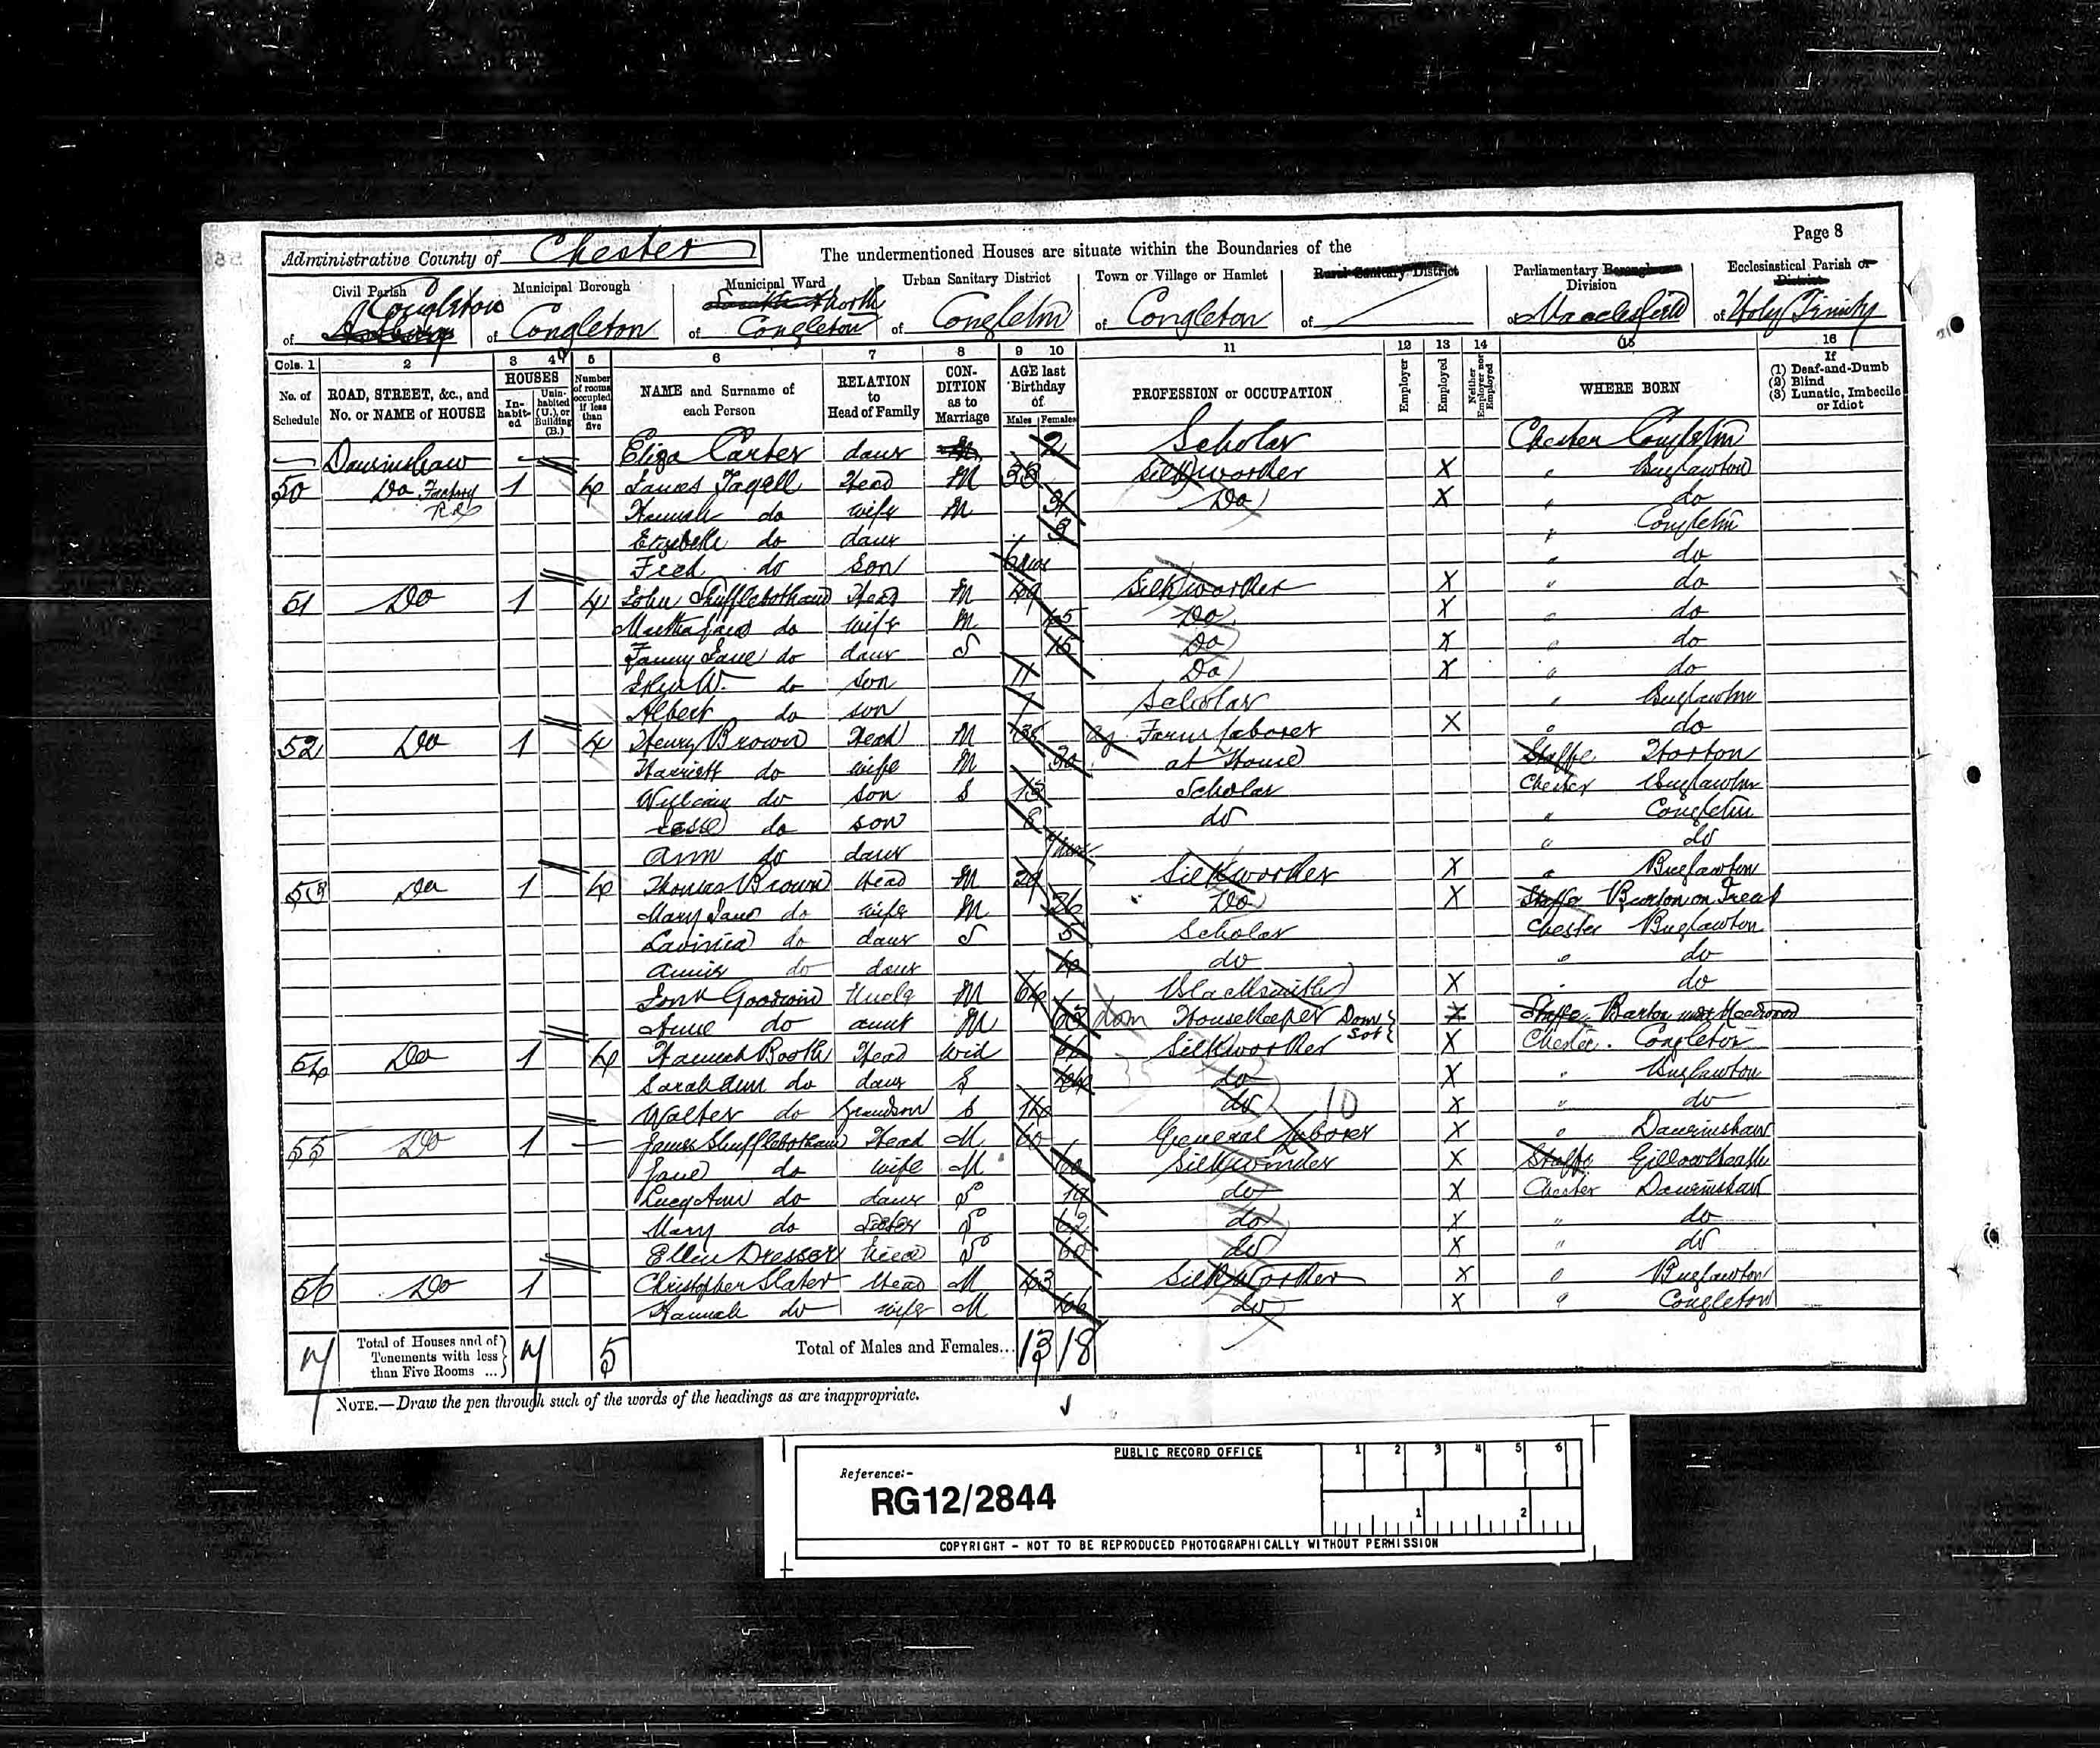 Page 8
Administrative County of Chester
The undermentioned Houses are situate within the Boundaries of the
Civil Parish of Congleton
Municipal Borough of Congleton
Municipal Ward of South North Congleton
Urban Sanitary District of Congleton
Town or Village or Hamlet of Congleton
Rural Sanitary District of
Parliamentary Borough or Division of Macclesfield
Ecclesiastical Parish or District of Holy Trinity
Cols. 1 2 3 4 5 6 7 8 9 10 11 12 13 14 15 16
No. of Schedule
ROAD, STREET, &c., and No. or NAME of HOUSE
HOUSES
In-habit-ed
Unin-habited (U.), or Building (B.)
Number of rooms occupied if less than five
NAME and Surname of each Person
RELATION to Head of Family
CON-DITION as to Marriage
AGE last Birthday of
Males Females
PROFESSION or OCCUPATION
Employer
Employed
Neither Employer nor Employed
WHERE BORN
If (1) Deaf-and-Dumb (2) Blind (3) Lunatic, Imbecile or Idiot
Daurinshaw Eliza Carter daur 2 Scholar Chester Congleton
50 Do Factory 1 4 Head M Silk worker X " Buglawton
Hannah do wife M 31 Do X " do
daur 3 " Congleton
Fred do Son " do
51 Do 1 4 John Shufflebotham Head M 49 Silk worker X " do
do wife M 45 Do X " do
Fanny Jane do daur S 16 Do X " do
W. do son 11 Do X " do
Albert do son 7 Scholar " Buglawton
52 Do 1 4 Henry Brown Head M Farm laborer X " do
Harriett do wife M 30 at Home Staffs Horton
William do son S 13 Scholar Chester Buglawton
do son 8 do " Congleton
Ann do daur " do
53 Do 1 4 Thomas Brown Head M 29 Silk worker X " Buglawton
Mary Jane do wife M 26 Do X Staffs Burton on Trent
Lavinia do daur S 5 Scholar Chester Buglawton
Annie do daur 4 do " do
Goodwin Uncle M 64 Blacksmith X " do
Anne do aunt M 63 dom Housekeeper Dom X Staffs
54 Do 1 4 Hannah Booth Head Wid Silk worker X Chester Congleton
Sarah Ann do daur S 44 do X " Buglawton
Walter do Grandson S do 10 X " do
55 Do 1 James Shufflebotham Head M 60 General Laborer X " Daurinshaw
Jane do wife M 60 Silk winder X Staffs
Lucy Ann do daur S 19 do X Chester Daurinshaw
Mary do Sister S 62 do X " do
Ellen Dresser niece S do X " do
56 Do 1 Christopher Slater Head M 43 Silk Worker X " Buglawton
Hannah do wife M 46 do X " Congleton
7 Total of Houses and of Tenements with less than Five Rooms ... 7 5 Total of Males and Females... 13 18
NOTE.—Draw the pen through such of the words of the headings as are inappropriate.
PUBLIC RECORD OFFICE
1 2 3 4 5 6
Reference:-
RG12/2844
1 2
COPYRIGHT - NOT TO BE REPRODUCED PHOTOGRAPHICALLY WITHOUT PERMISSION